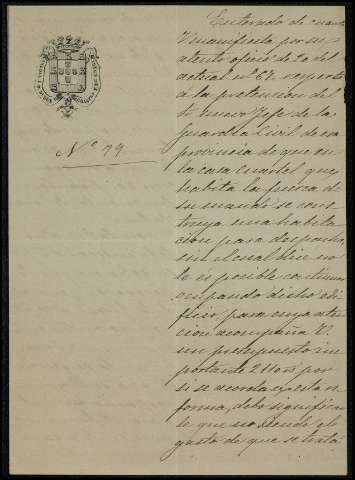 Nº 79
Enterado de cuanto
V. manifiesta por su
atento oficio de 20 del
actual nº 67. respecto
a la pretension del
nuevo Jefe de la
Guardia Civil de esa
provincia de que en
la casa cuartel que
habita la fuerza de
su mando se cons
truya una habita
cion para despacho,
sin el cual dice no
le es posible continuar
ocupando dicho edi
ficio para cuya aten
cion acompaña V.
un presupuesto im
portante por
si se acorda esta re
forma, debo significar
le que no siendo el
gasto de que se trata